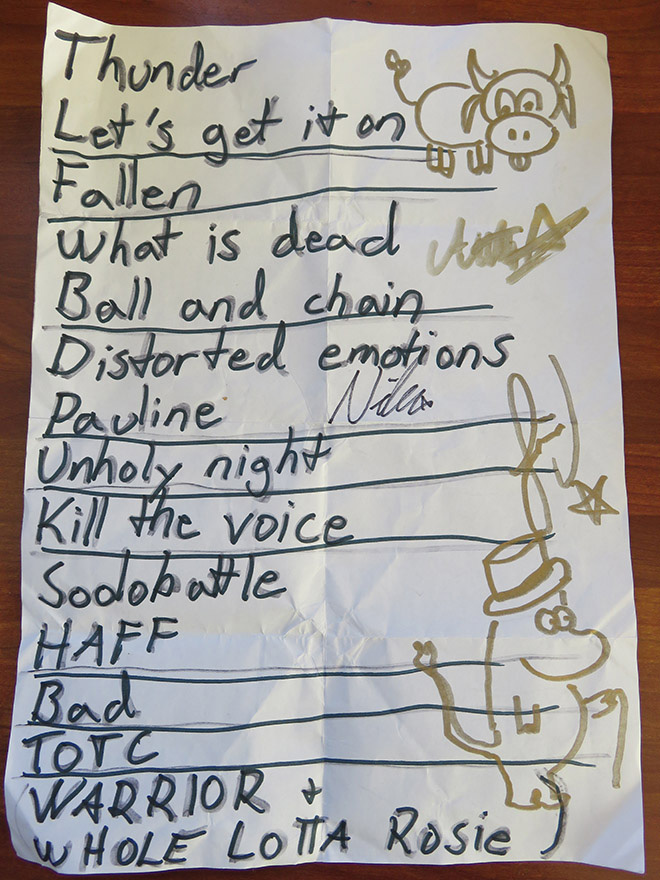 Thunder
Let's get it on
Fallen
What is dead
Ball and chain
Distorted emotions
Pauline
Unholy night
Kill the voice
Sodobattle
HAFF
Bad
TOTC
WARRIOR +
WHOLE LOTTA Rosie